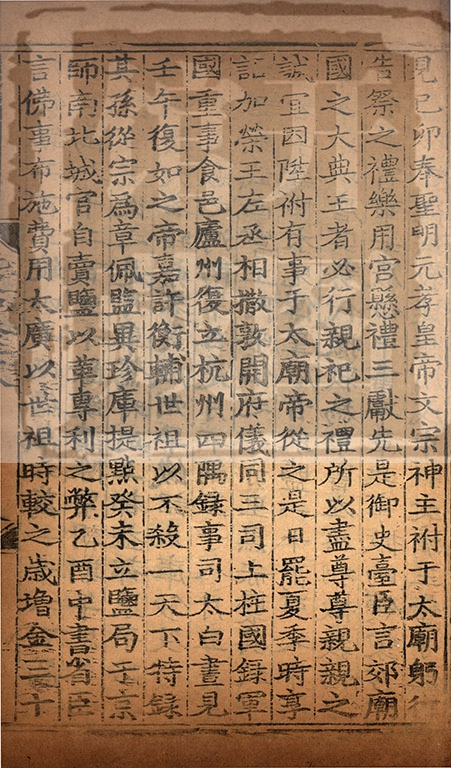 見己卯奉聖明元孝皇帝文宗神主祔于太廟躬行
告祭之禮樂用宮懸禮三獻先是御史臺臣言郊廟
國之大典王者必行親祀之禮所以盡尊尊親親之
誠宜因陞祔有事于太廟帝從之是日罷夏季時享
詔加榮王左丞相撒敦開府儀同三司上柱國録軍
國重事食邑廬州復立杭州四隅録事司太白晝見
壬午復如之帝嘉許衡輔世祖以不殺一天下特録
其孫從宗為章佩監異珍庫提點癸未立鹽局于京
師南北城官自賣鹽以革專利之弊乙酉中書省臣
言佛事布施費用太廣以世祖時較之歲增金三十